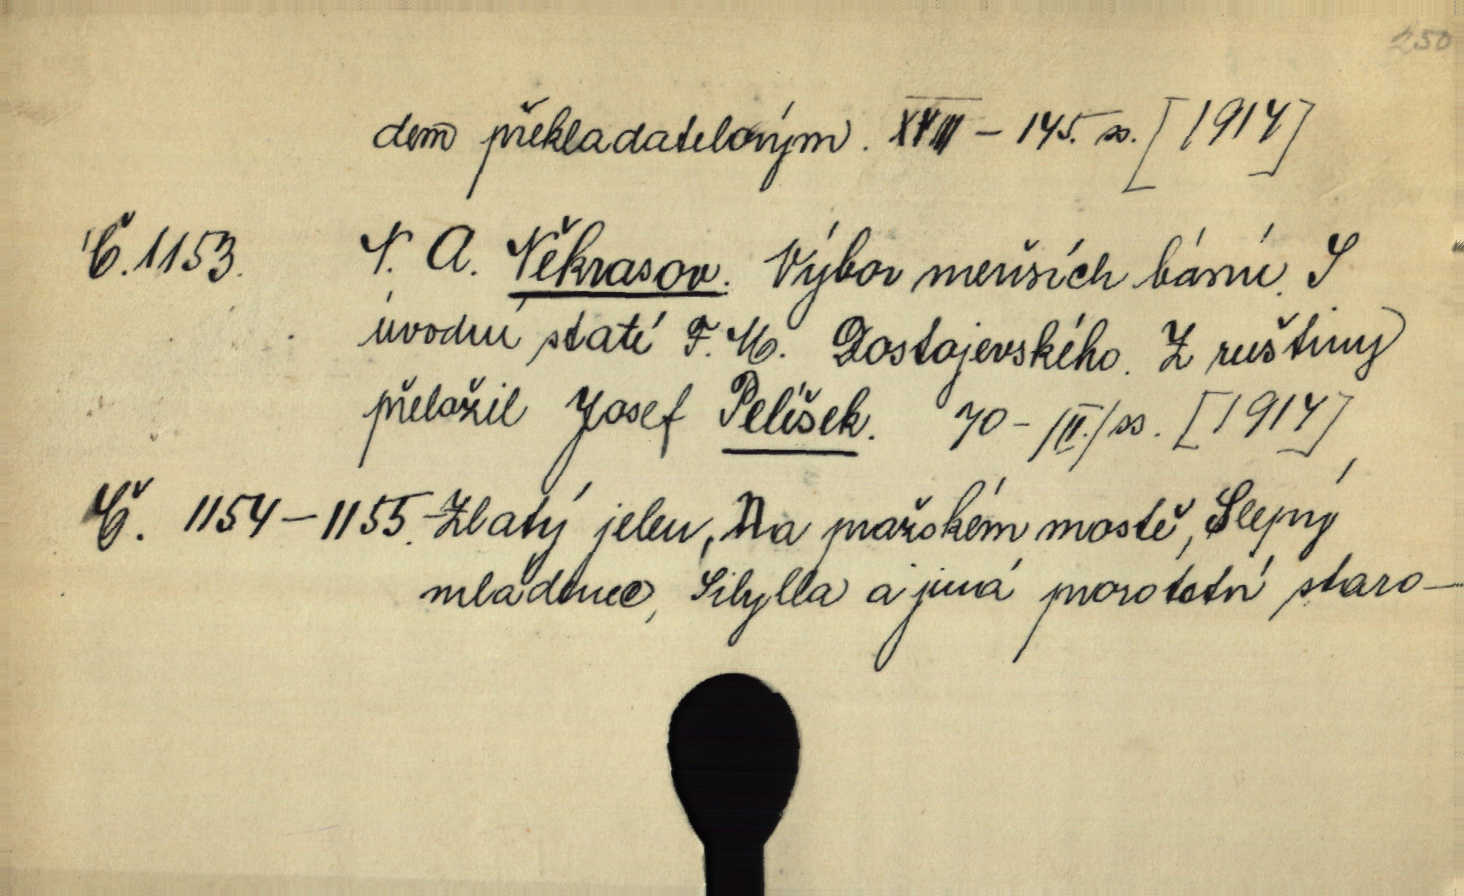 250
dem překladatelovým. XVIII – 145. ss. [1914]
Č. 1153. N. A. Někrasov. Výbor menších básní. S
úvodní statí F. M. Dostojevského. Z ruštiny
přeložil Josef Pelíšek. 70 – /II./ ss. [1914]
Č. 1154 – 1155. Zlatý jelen, Na pražském mostě, Slepý
mládenec, Sibylla a jiná prorotctví staro–